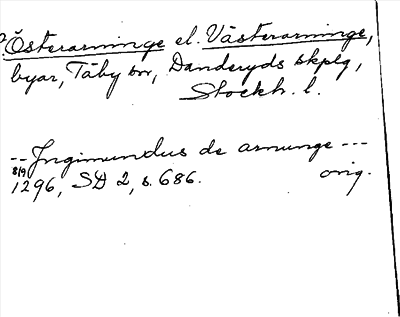 Österarninge el. Västerarninge,
byar, Täby sn, Danderyds skplg,
Stockh. l.
-- Ingimundus de arnunge ---
8/9 1296, SD 2, s. 686. orig.